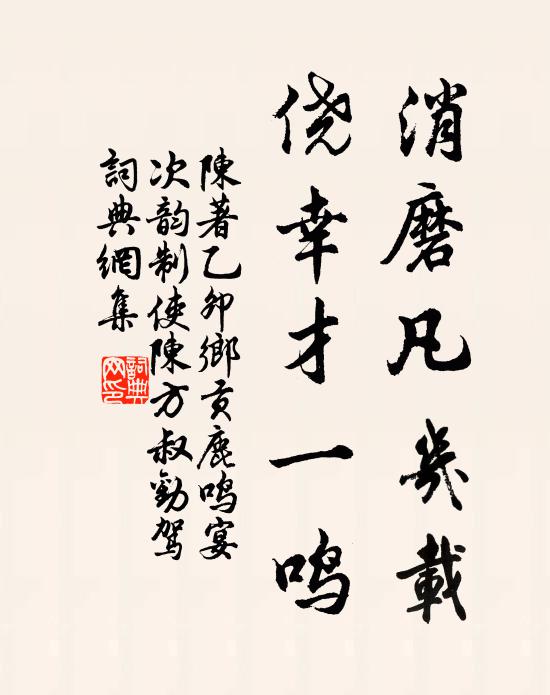 消磨凡幾載
侥幸才一鳴
陳著乙卯鄉貢鹿鳴宴
次韵制使陳方叔勸駕
詞典網集
詞典
网印